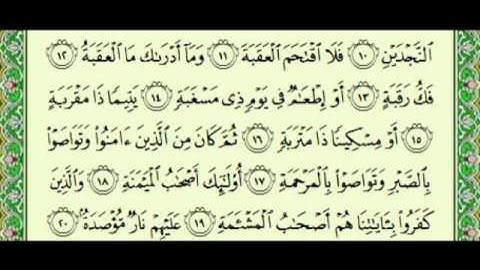 ٱلنَّجْدَيْنِ ١٠ فَلَا ٱقْتَحَمَ ٱلْعَقَبَةَ ١١ وَمَآ أَدْرَىٰكَ مَا ٱلْعَقَبَةُ ١٢
فَكُّ رَقَبَةٍ ١٣ أَوْ إِطْعَٰمٌ فِي يَوْمٍ ذِي مَسْغَبَةٍ ١٤ يَتِيمًا ذَا مَقْرَبَةٍ
١٥ أَوْ مِسْكِينًا ذَا مَتْرَبَةٍ ١٦ ثُمَّ كَانَ مِنَ ٱلَّذِينَ ءَامَنُوا۟ وَتَوَاصَوْا۟
بِٱلصَّبْرِ وَتَوَاصَوْا۟ بِٱلْمَرْحَمَةِ ١٧ أُو۟لَٰٓئِكَ أَصْحَٰبُ ٱلْمَيْمَنَةِ ١٨ وَٱلَّذِينَ
كَفَرُوا۟ بِـَٔايَٰتِنَا هُمْ أَصْحَٰبُ ٱلْمَشْـَٔمَةِ ١٩ عَلَيْهِمْ نَارٌ مُّؤْصَدَةٌۢ ٢٠